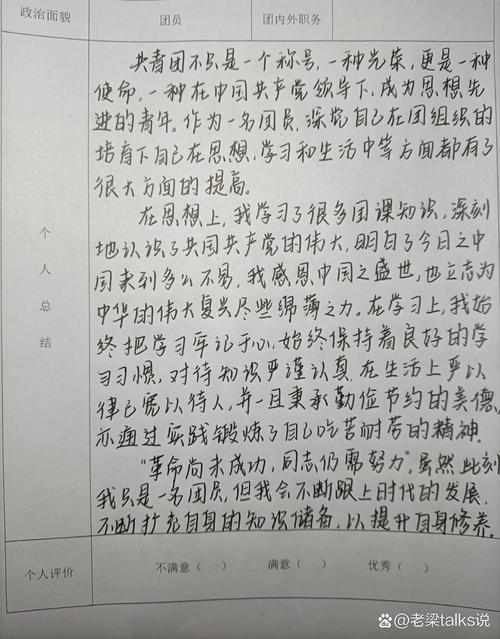 政治面貌 团员 团内外职务
共青团不只是一个称号，一种光荣，更是一种
使命，一种在中国共产党领导下，成为思想先
进的青年。作为一名团员，深觉自己在团组织的
培育下自己在思想，学习和生活中等方面都有了
很大方面的提高。
在思想上，我学习了很多团课知识，深刻
地认识了共国共产党的伟大，明白了今日之中
国来到多么不易，我感恩中国之盛世，也立志为
中华的伟大复兴尽些绵薄之力。在学习上，我始
终把学习牢记于心，始终保持着良好的学
习习惯，对待知识严谨认真。在生活上严以
律己宽以待人，并一且秉承勤俭节约的美德，
亦通过实践锻炼了自己吃苦耐劳的精神。
“革命尚未成功，同志仍需努力”，虽然此刻
我只是一名团员，但我会不断跟上时代的发展，
不断扩充自身的知识储备，以提升自身修养。
个人总结
个人评价 不满意（ ） 满意（ ） 优秀（ ）
@老梁talks说